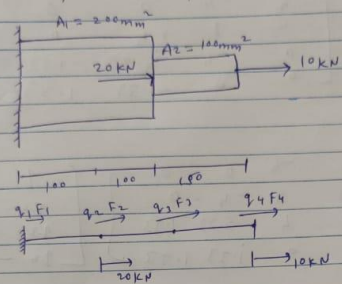 A₁ = 200mm²
A₂ = 100mm²
20KN
10KN
100 100 100
q₁ F₁ q₂ F₂ q₃ F₃ q₄ F₄
20KN
10KN